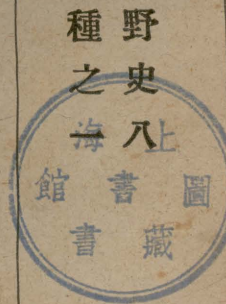 野史八
種之一
上海
圖書館
藏書